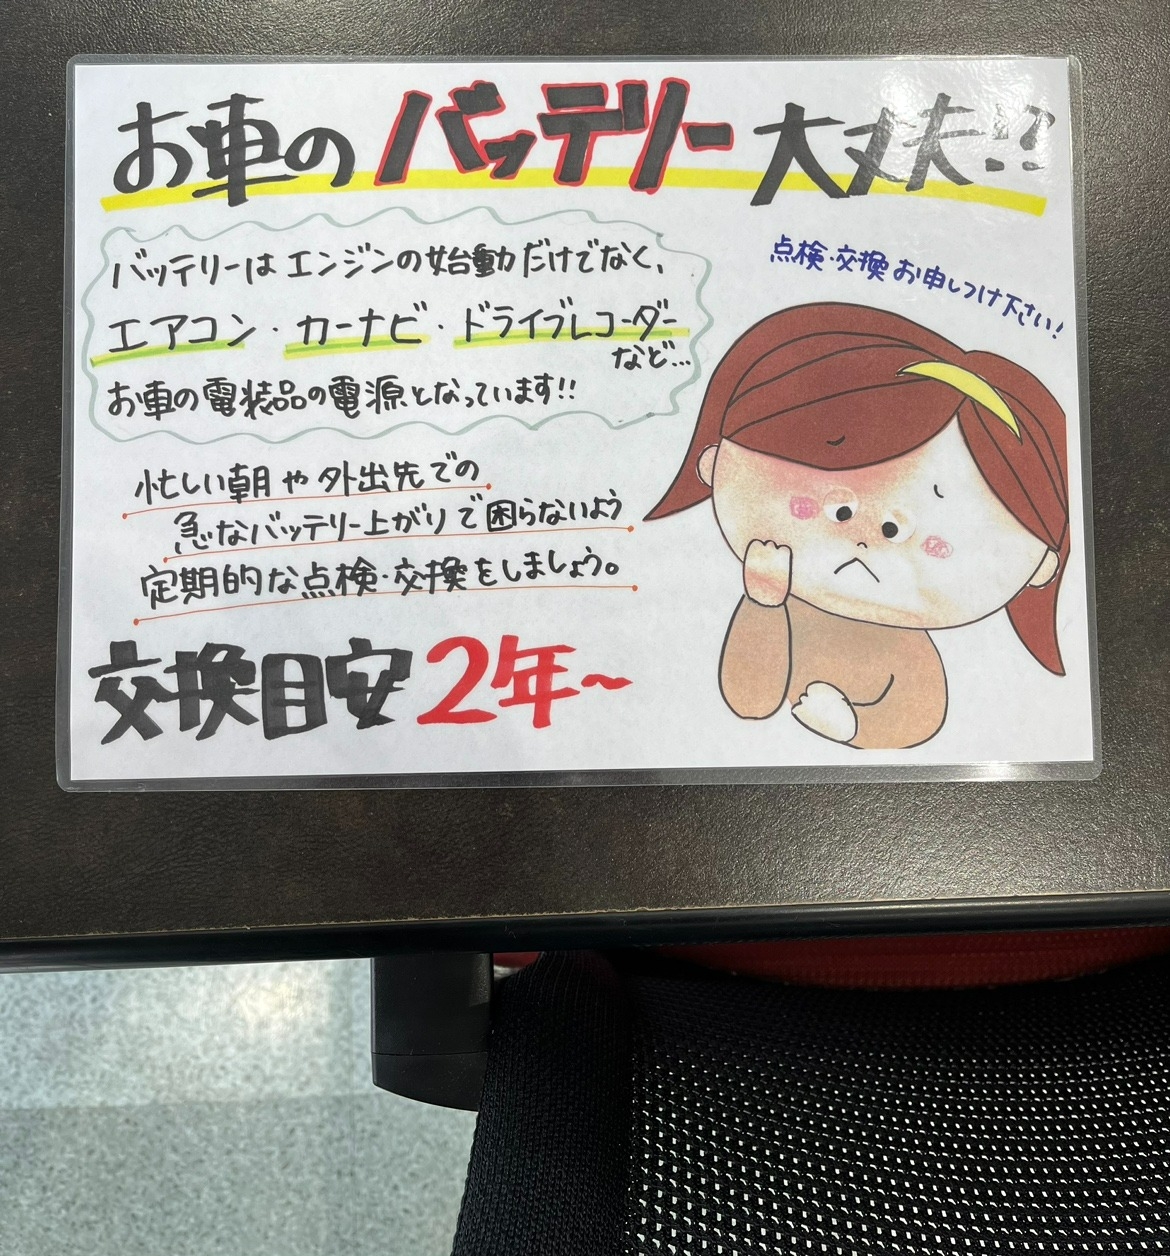 お車のバッテリー大丈夫!?
バッテリーはエンジンの始動だけでなく、
エアコン・カーナビ・ドライブレコーダー
など…
お車の電装品の電源となっています!!
点検・交換お申しつけ下さい!
忙しい朝や外出先での
急なバッテリー上がりで困らないよう
定期的な点検・交換をしましょう。
交換目安2年~